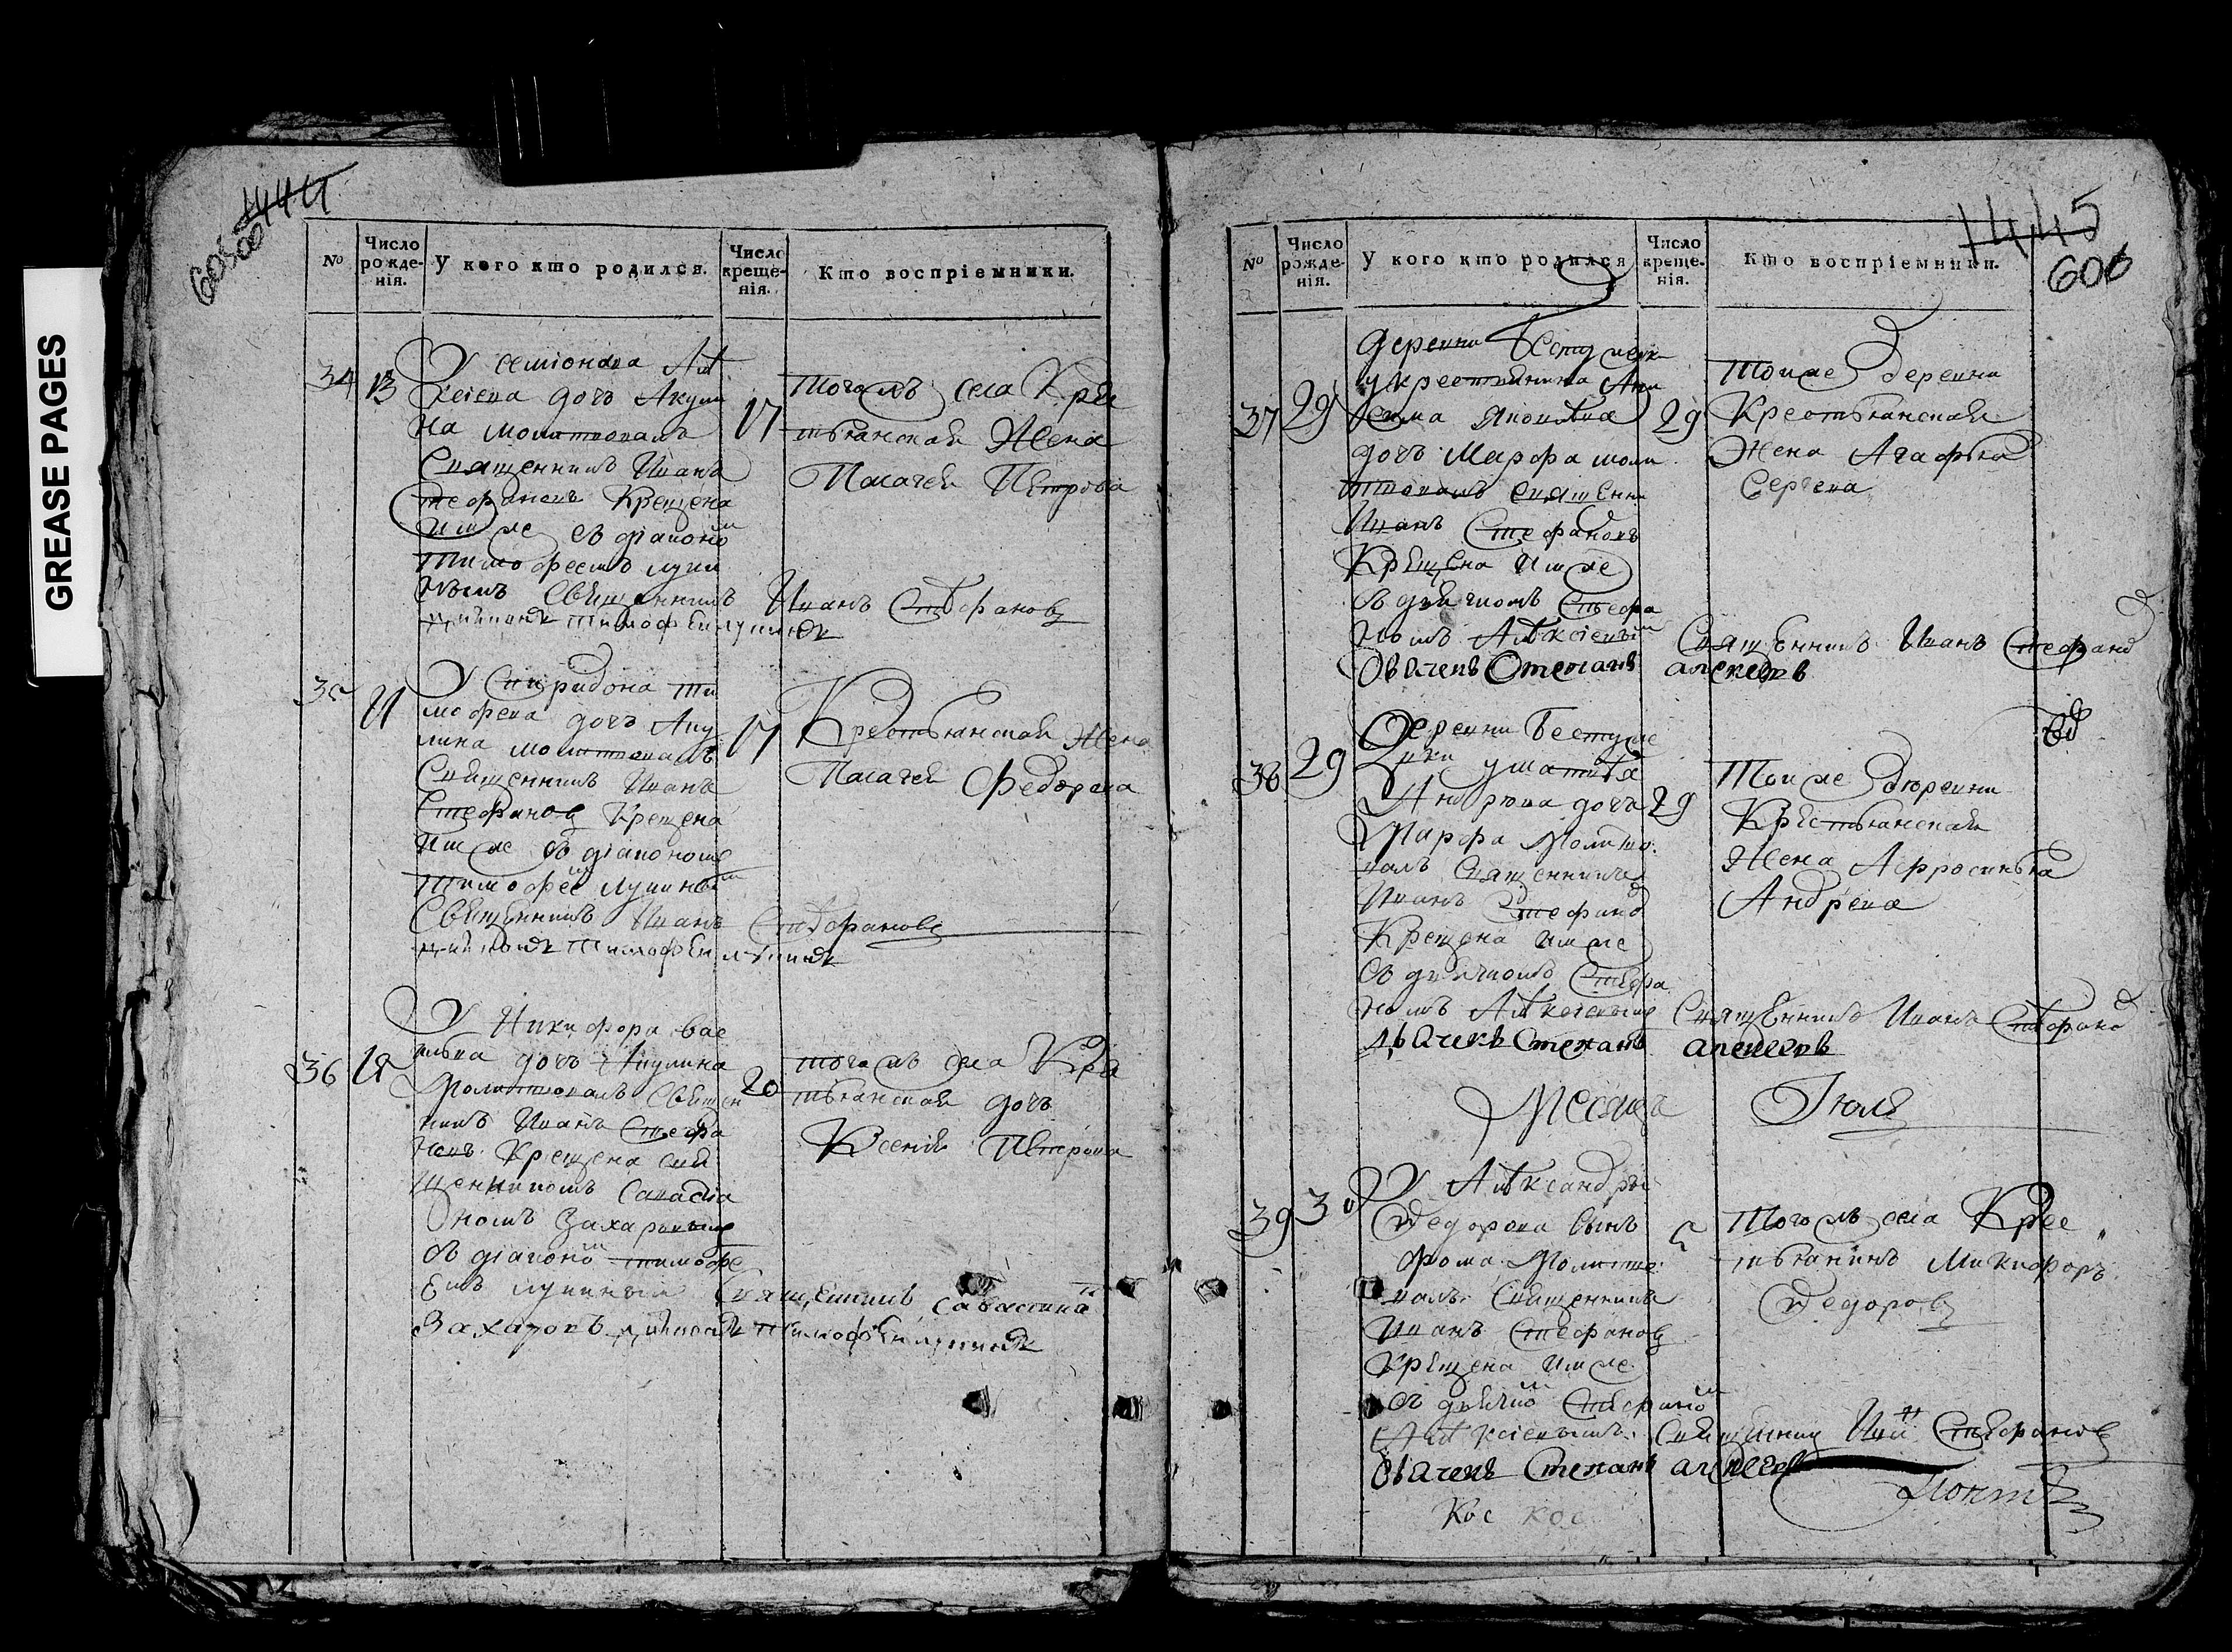 GREASE PAGES
1444
605об
№
Число рожденія.
У кого кто родился.
Число крещенія.
Кто воспріемники.
34
13
У семіонова Алѣ
ксіева дочь Акули
на молитвовалъ
Священникъ Иванъ
Стефановъ Крещена
Имже съ діакономъ
Тимофеемъ Лупи
нымъ Священникъ Иванъ Стефановъ
17
тогожъ села Крес
тьянская Жена
Пелагея Петрова
35
У Спиридона Ти
мофева дочь Аку
лина молитвовалъ
Священникъ Иванъ
Стефановъ Крещена
Имже съ діакономъ
Тимофее Лупинымъ
Священникъ Иванъ Стефановъ
17
Крестьянская Жена
Пелагея Федорова
36
У Никифора Вас
ильва дочь Акулина
Молитвовалъ Священ
никъ Иванъ Стефа
новъ Крещена свя
щенникомъ Савастіа
номъ Захаровымъ
съ діакономъ Тимофе
емъ Лупинымъ Священникъ Савастианъ
Захаровъ
20
тогожъ села Крес
тьянская дочь
Ксенія Петрова
1445
606
№
Число рожденія.
У кого кто родился
Число крещенія.
Кто воспріемники.
деревни Бестужевки
37
29
у крестьянина Ани
сима Яковлева
дочь Марфа моли
твовалъ священикъ
Иванъ Стефановъ
Крещена Имже
съ дьячкомъ Стефа
номъ Алѣксіевымъ Священникъ Иванъ Стефановъ
Дьячекъ Степанъ алексеевъ
29
Тоиже деревни
Крестьянская
Жена Агафья
Сергева
38
29
Деревни Бестуже
вки у матвѣя
Андрюва дочь
Марфа Молитво
валъ Священникъ
Иванъ Стефановъ
Крещена имже
съ дьячкомъ Стефа
номъ Алѣксіевымъ Священникъ Иванъ Стефановъ
Дьячекъ Степанъ алексеевъ
29
Тоиже дюревни
Крестьянская
Жена Афросинья
Андрева
Месяцъ Іюль
39
30
У Алѣксандры
Федорова сынъ
Фома Молитво
валъ Священникъ
Иванъ Стефановъ
Крещена имже
съ дьячко Стефаномъ
Алѣксіевымъ Священникъ Иванъ Стефановъ
Дьячекъ Степанъ алексеевъ
5
Тогожъ села Крес
тьянинъ Микифоръ
Федоровъ
Кос кос